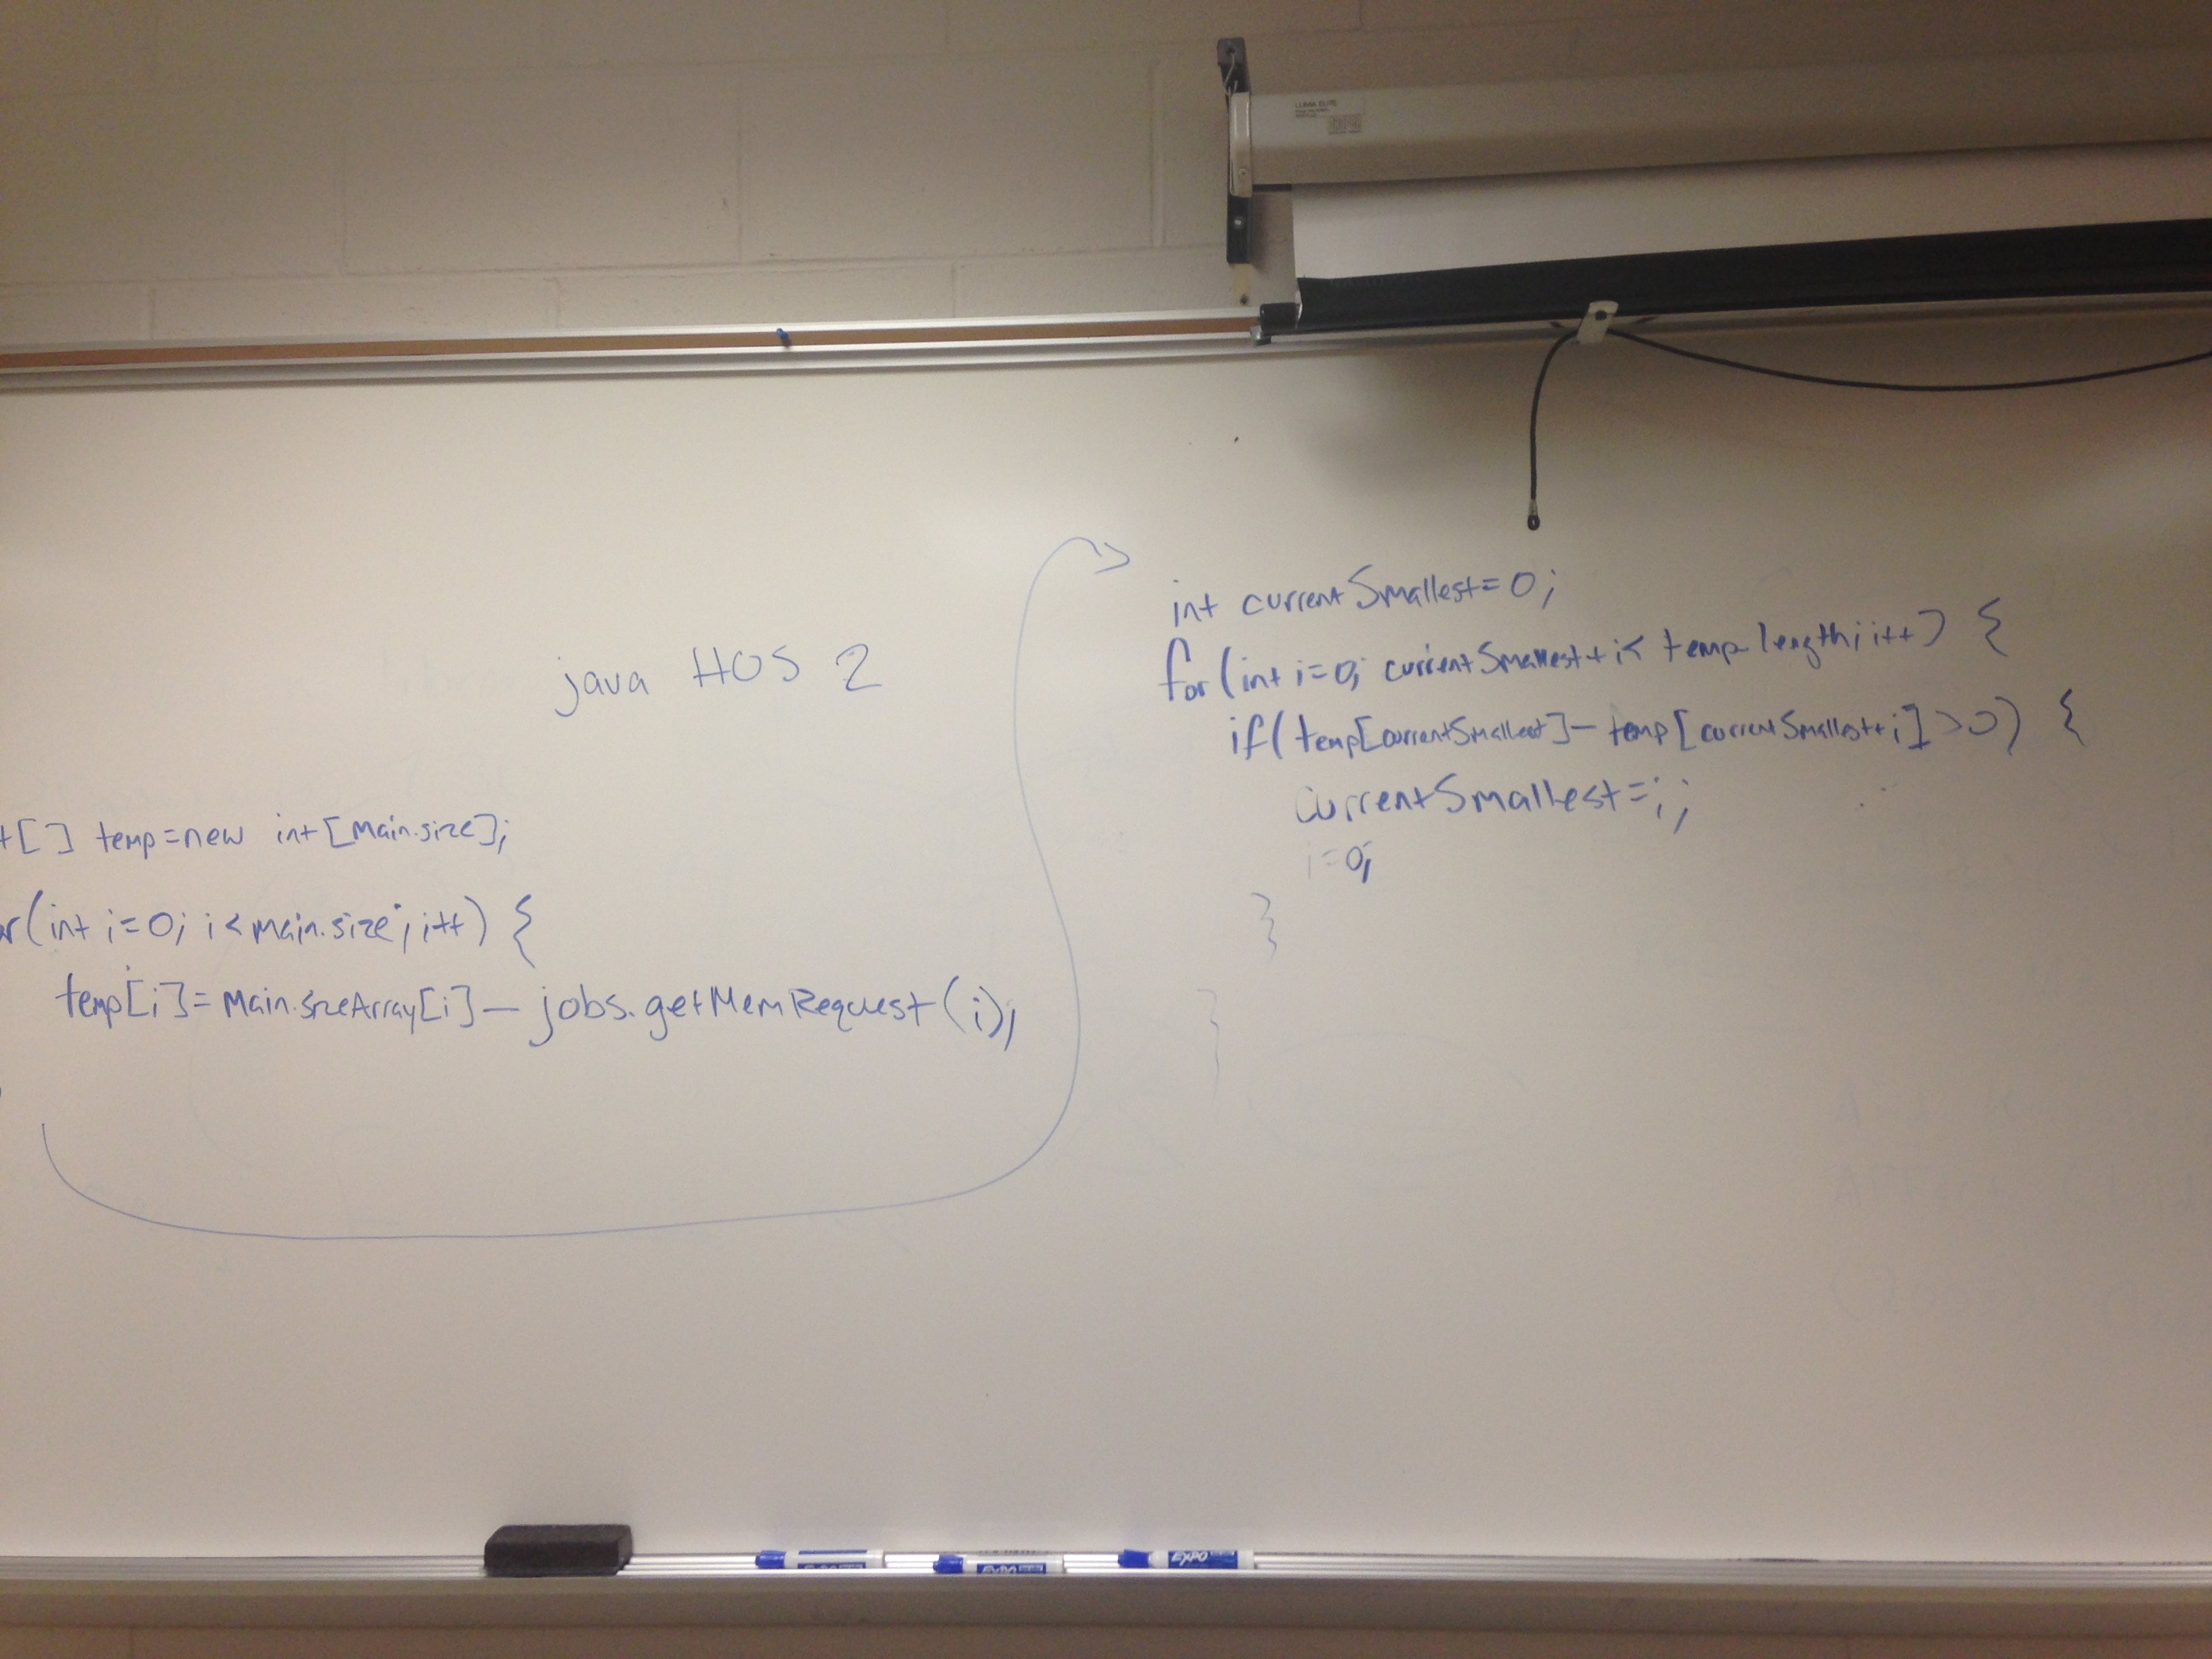 LUMA ELITE
java HOS 2
t[] temp=new int[Main.size];
or(int i=0; i<main.size; i++) {
temp[i]=Main.sizeArray[i]-jobs.getMemRequest(i);
int currentSmallest=0;
for(int i=0; currentSmallest+i< temp.length; i++) {
if(temp[currentSmallest]-temp[currentSmallest+i]>0) {
currentSmallest=i;
i=0;
}
}
EXPO
EXPO
EXPO